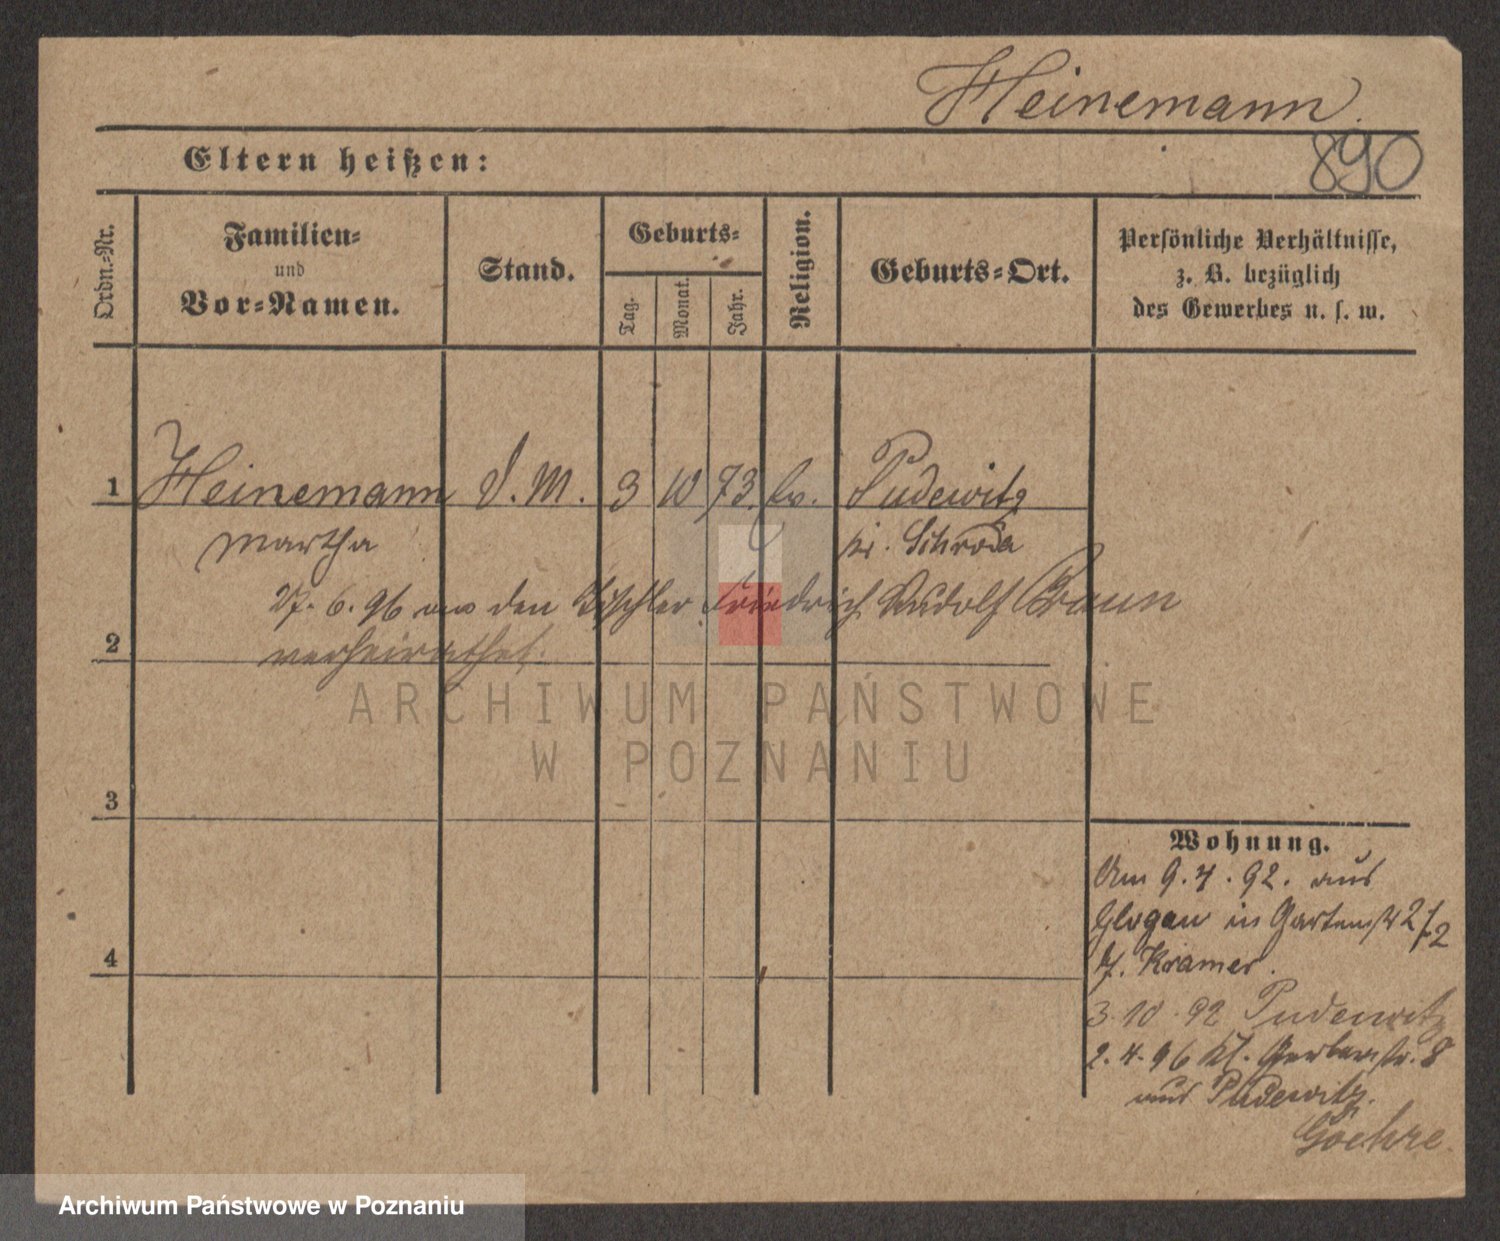 Heinemann.
890
Eltern heißen:
Ordn.-Nr.
Familien-
und
Vor-Namen.
Stand.
Geburts-
Tag.
Monat.
Jahr.
Religion.
Geburts-Ort.
Persönliche Verhältnisse,
z. B. bezüglich
des Gewerbes u. s. w.
1 Heinemann D. M. 3 10 73. Ev. Pudewitz
Martha Kr. Schroda
27. 6. 96 an den Tischler Friedrich Rudolf Braun
2 verheirathet.
ARCHIWUM PAŃSTWOWE
W POZNANIU
3
Wohnung.
Am 9. 7. 92. aus
Glogau in Gartenstr 2/2
Kramer.
4
3. 10. 92 Pudewitz
2. 4. 96 Kl. Gerberstr. 8
aus Pudewitz.
Goehre
Archiwum Państwowe w Poznaniu